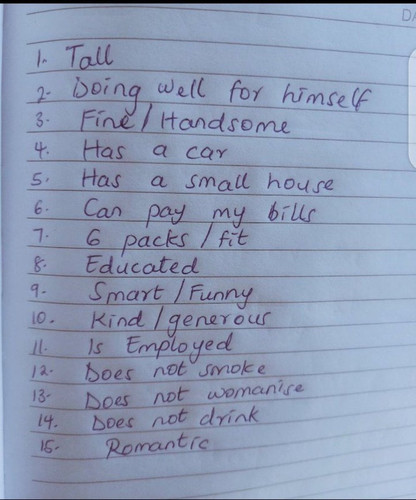 DA
1. Tall
2. Doing well for himself
3. Fine / Handsome
4. Has a car
5. Has a small house
6. Can pay my bills
7. 6 packs / fit
8. Educated
9. Smart / Funny
10. Kind / generous
11. Is Employed
12. Does not smoke
13. Does not womanise
14. Does not drink
15. Romantic